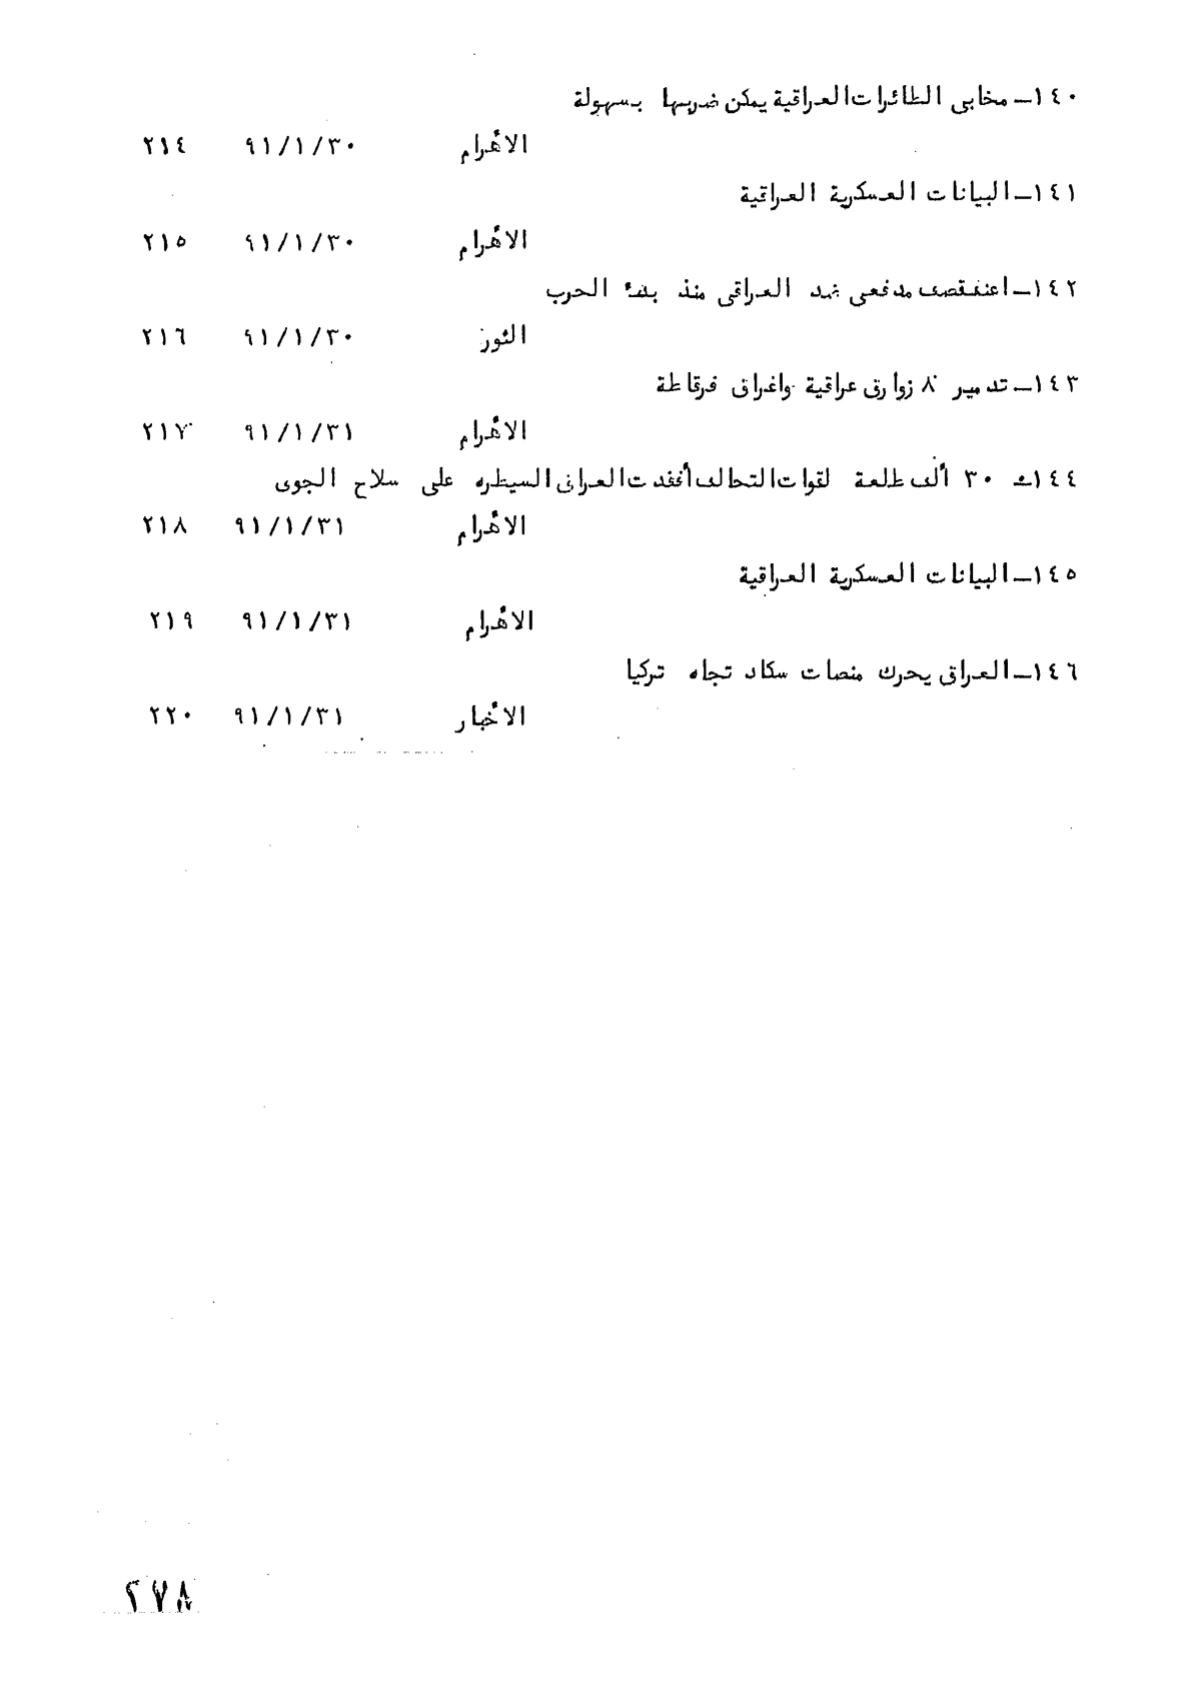 ١٤٠ــ مخابى الطائرات العراقية يمكن ضربها بسهولة
الأهرام ٩١/١/٣٠ ٢١٤
١٤١ــ البيانات العسكرية العراقية
الأهرام ٩١/١/٣٠ ٢١٥
١٤٢ــ اعنف قصف مدفعى ضد العراقى منذ بدء الحرب
النور ٩١/١/٣٠ ٢١٦
١٤٣ــ تدمير ٨ زوارق عراقية واغراق فرقاطة
الأهرام ٩١/١/٣١ ٢١٧
١٤٤ــ ٣٠ ألف طلعة لقوات التحالف أفقدت العراق السيطره على سلاح الجوى
الأهرام ٩١/١/٣١ ٢١٨
١٤٥ــ البيانات العسكرية العراقية
الأهرام ٩١/١/٣١ ٢١٩
١٤٦ــ العراق يحرك منصات سكاد تجاه تركيا
الأخبار ٩١/١/٣١ ٢٢٠
٢٧٨